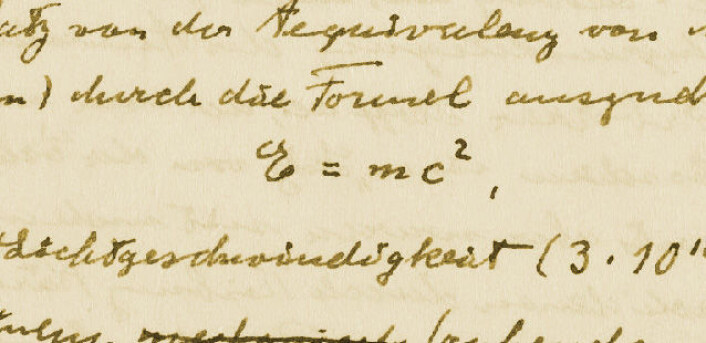 von der Aequivalenz von
durch die Formel
E = mc²,
Lichtgeschwindigkeit (3 · 10